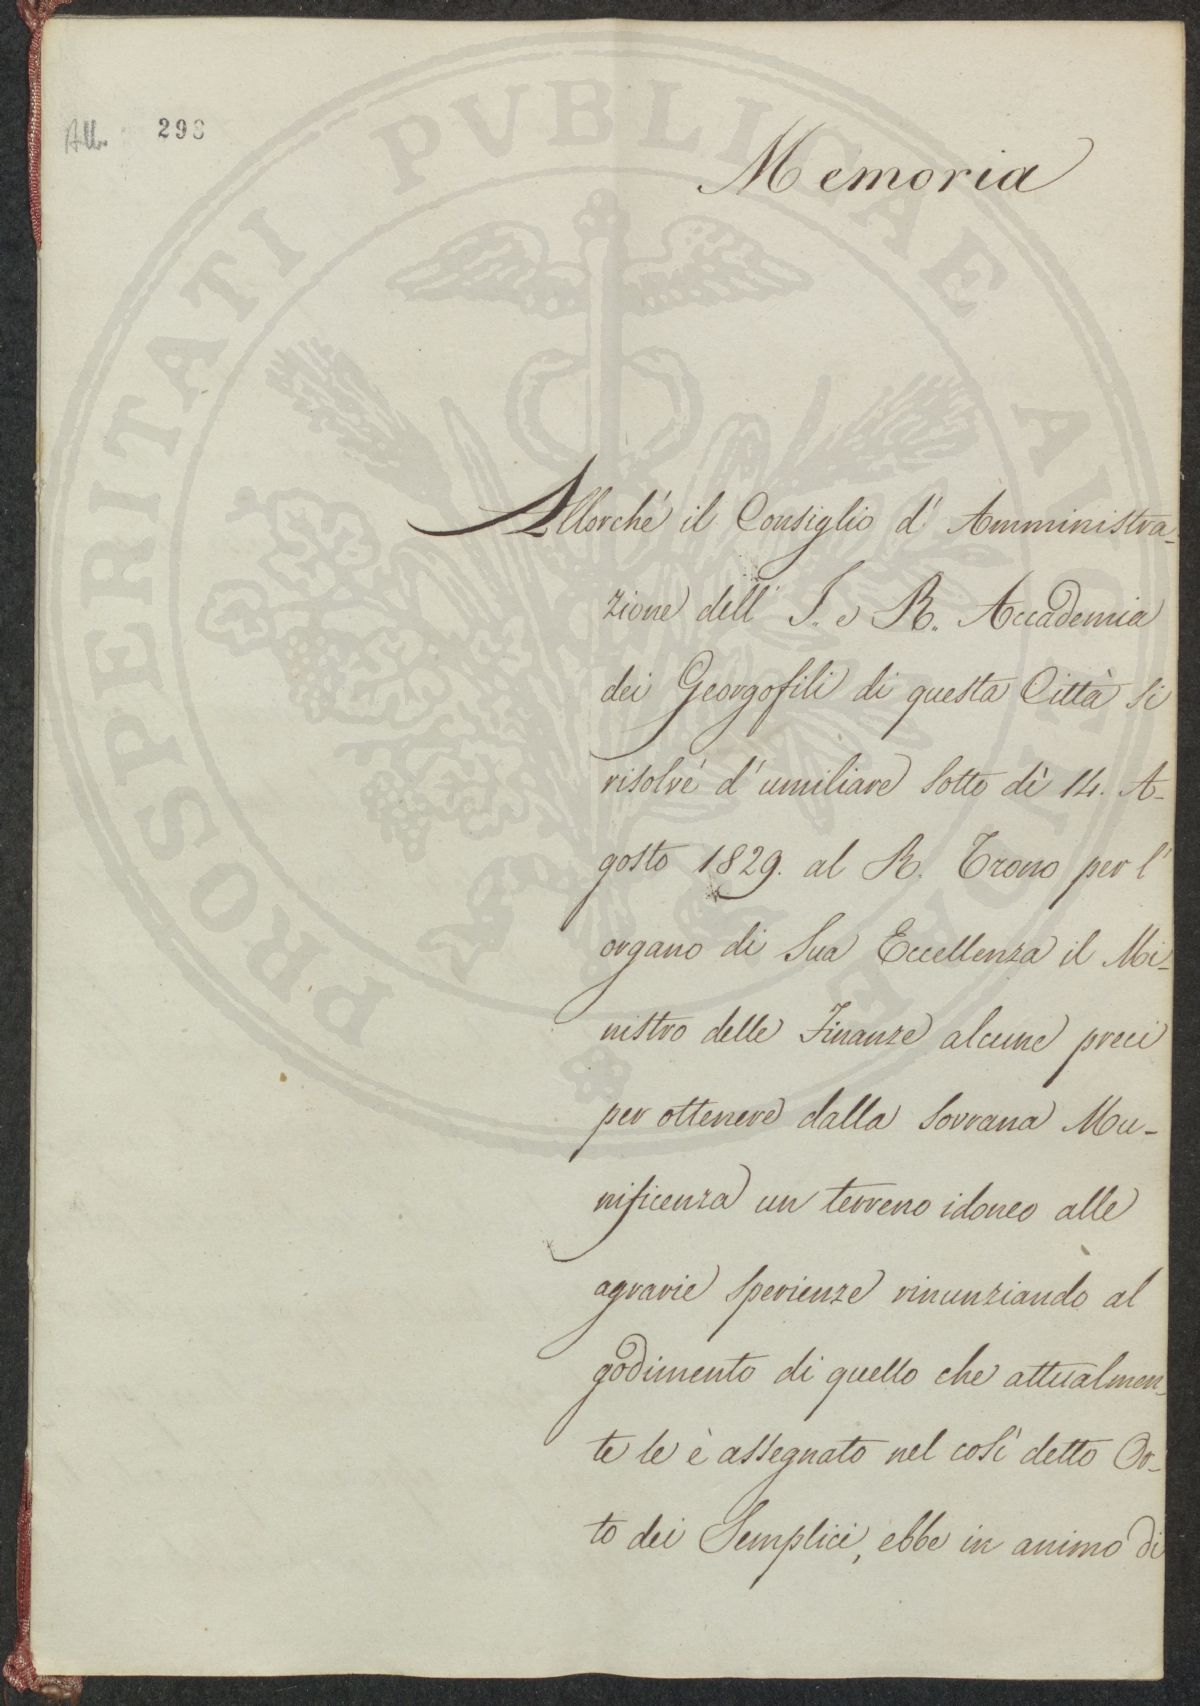 All. 298
Memoria
Allorché il Consiglio d' Amministra-
zione dell' I. e R. Accademia
dei Georgofili di questa Città si
risolvé d' umiliare sotto dì 14. A-
gosto 1829. al R. Trono per l'
organo di Sua Eccellenza il Mi-
nistro delle Finanze alcune preci
per ottenere dalla Sovrana Mu-
nificenza un terreno idoneo alle
agrarie sperienze rinunziando al
godimento di quello che attualmen-
te le è assegnato nel così detto Or-
to dei Semplici, ebbe in animo di
PROSPERITATI PVBLICAE AVGENDAE